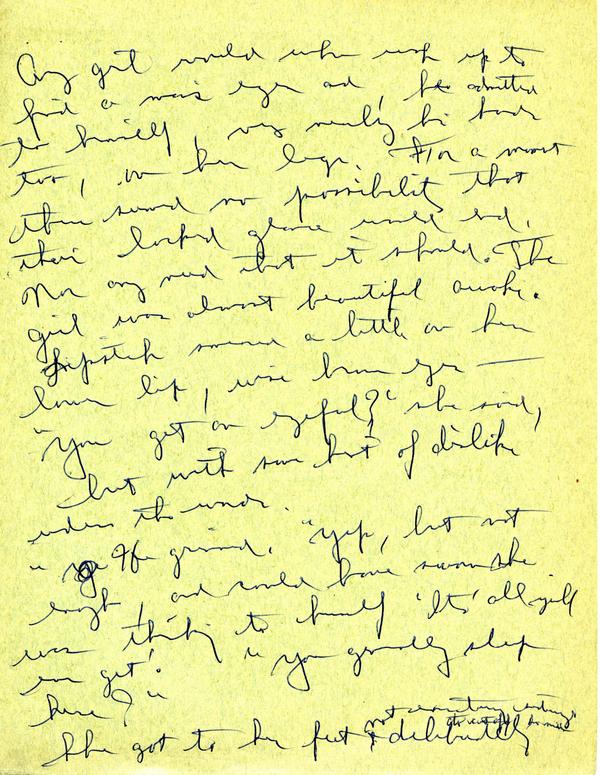 Any girl would when woke up to
find a man's eyes and, he admitted
to himself, very nearly his hands
too, on her legs. For a moment
there seemed no possibility that
their locked glance would end.
Nor any need that it should. The
girl was almost beautiful awake.
Lipstick smeared a little on her
lower lip, wise brown eyes —
"You get an eyeful?" she said,
but with some hint of dislike
under the words.
He grinned. "Yep, but not
enough, and could have sworn she
was thinking to himself 'It's all you'll
ever get'. "You generally sleep
here?"
She got to her feet & deliberately
not